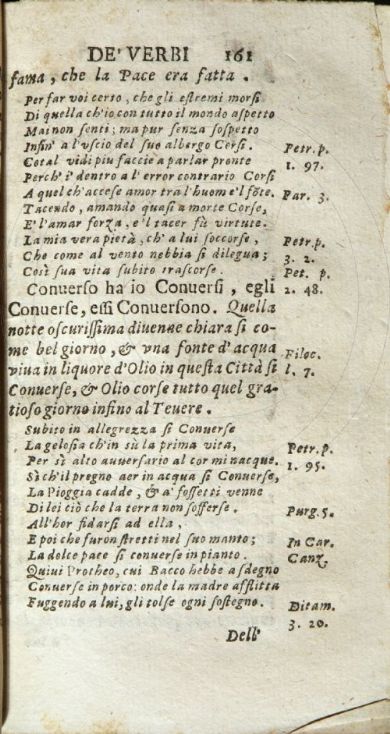 DE' VERBI 161
fama, che la Pace era fatta.
Per far voi certo, che gli estremi morsi
Di quella ch'io con tutto il mondo aspetto
Mai non senti; ma pur senza sospetto
Infin' a l'vscio del suo albergo Corsi. Petr. p.
Cotal vidi piu faccie a parlar pronte 1. 97.
Perch' i' dentro a l'error contrario Corsi
A quel ch'accese amor tra l'huom e'l fõte. Par. 3.
Tacendo, amando quasi a morte Corse,
E' l'amar forza, e'l tacer fù virtute.
La mia vera pietà, ch'a lui soccorse, Petr. p.
Che come al vento nebbia si dilegua; 3. 2.
Così sua vita subito trascorse. Pet. p.
Conuerso ha io Conuersi, egli 2. 48.
Conuerse, essi Conuersono. Quella
notte oscurissima diuenne chiara si co-
me bel giorno, & vna fonte d'acqua
viua in liquore d'Olio in questa Città si Filoc.
Conuerse, & Olio corse tutto quel gra- l. 7.
tioso giorno infino al Teuere.
Subito in allegrezza si Conuerse
La gelosia ch'in sù la prima vita,
Per sì alto auuersario al cor mi nacque. Petr. p.
Sì ch'il pregno aer in acqua si Conuerse, 1. 95.
La Pioggia cadde, & a' fossetti venne
Di lei ciò che la terra non sofferse. Purg. 5.
All'hor fidarsi ad ella,
E poi che furon stretti nel suo manto; In Car.
La dolce pace si conuerse in pianto. Canz.
Quiui Protheo, cui Bacco hebbe a sdegno
Conuerse in porco: onde la madre afflitta
Fuggendo a lui, gli tolse ogni sostegno. Ditam.
3. 20.
Dell'